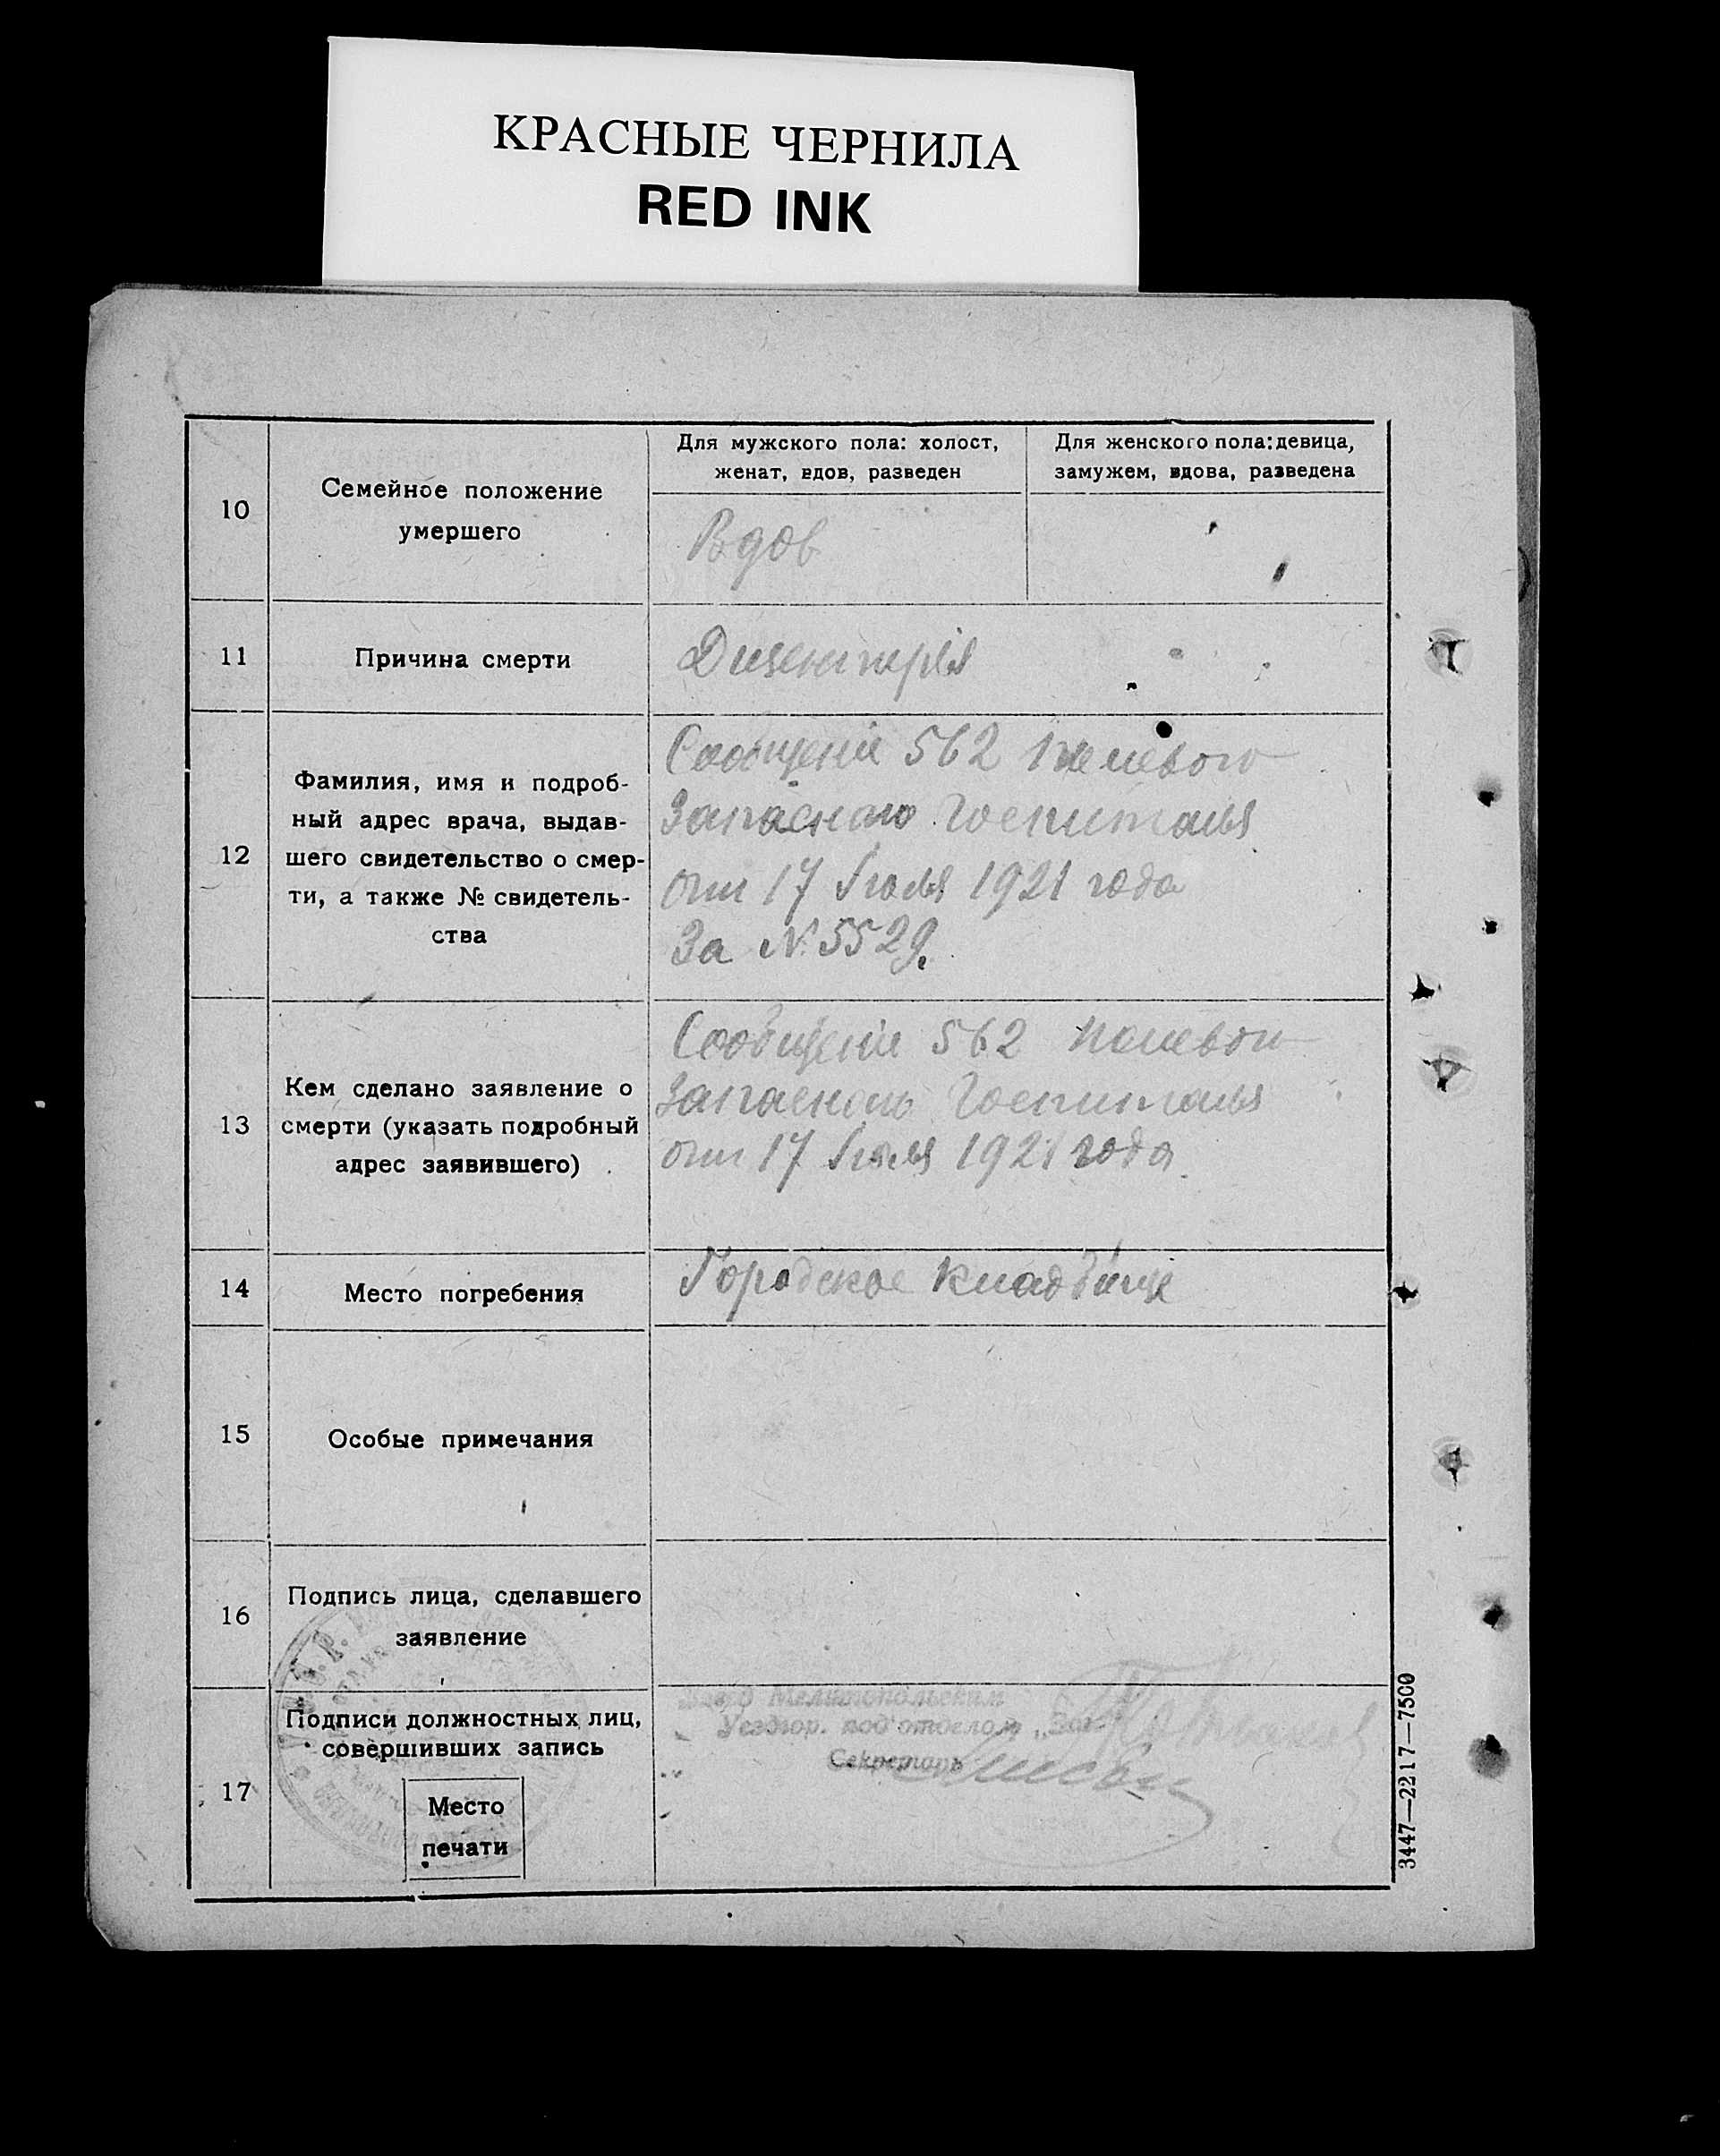 КРАСНЫЕ ЧЕРНИЛА
RED INK
10
Семейное положение
умершего
Для мужского пола: холост,
женат, вдов, разведен
Для женского пола: девица,
замужем, вдова, разведена
Вдов
11
Причина смерти
Дизентерія
12
Фамилия, имя и подроб-
ный адрес врача, выдав-
шего свидетельство о смер-
ти, а также № свидетель-
ства
Сообщеніе 562 полевого
Запасного Госпиталя
от 17 Іюля 1921 года
За № 5529.
13
Кем сделано заявление о
смерти (указать подробный
адрес заявившего)
Сообщеніе 562 полевого
Запасного Госпиталя
от 17 Іюля 1921 года.
14
Место погребения
Городское кладбище
15
Особые примечания
16
Подпись лица, сделавшего
заявление
17
Подписи должностных лиц,
совершивших запись
Место
печати
Мелитопольским
Уездгор. под'отделом
Секретарь
3447—2217—7500